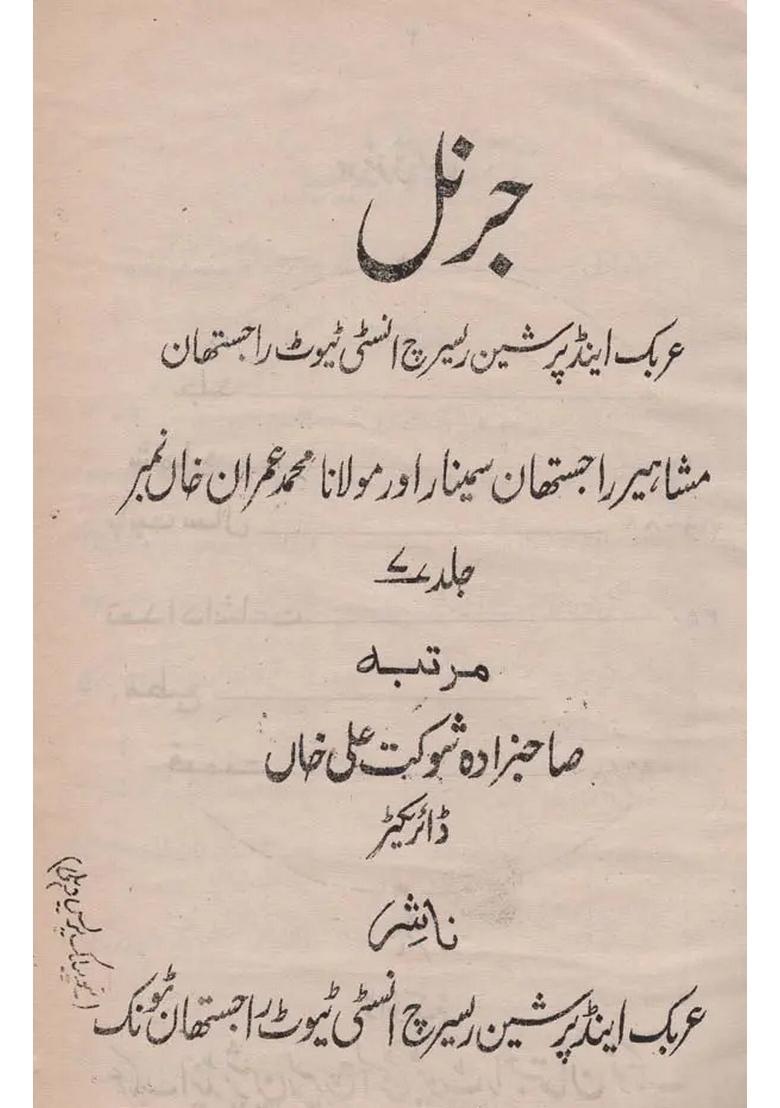 جرنل
عربک اینڈ پرشین ریسرچ انسٹی ٹیوٹ راجستھان
مشاہیر راجستھان سمینار اور مولانا محمد عمران خاں نمبر
جلد ۷
مرتبہ
صاحبزادہ شوکت علی خاں
ڈائریکٹر
ناشر
عربک اینڈ پرشین ریسرچ انسٹی ٹیوٹ راجستھان ٹونک
پریس دہلی)